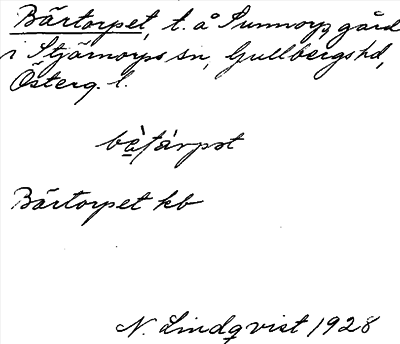 Bärtorpet, t. å Sunnorps gård
i Stjärnorps sn, Gullbergs hd,
Österg. l.
Bärtorpet kb
N. Lindqvist 1928